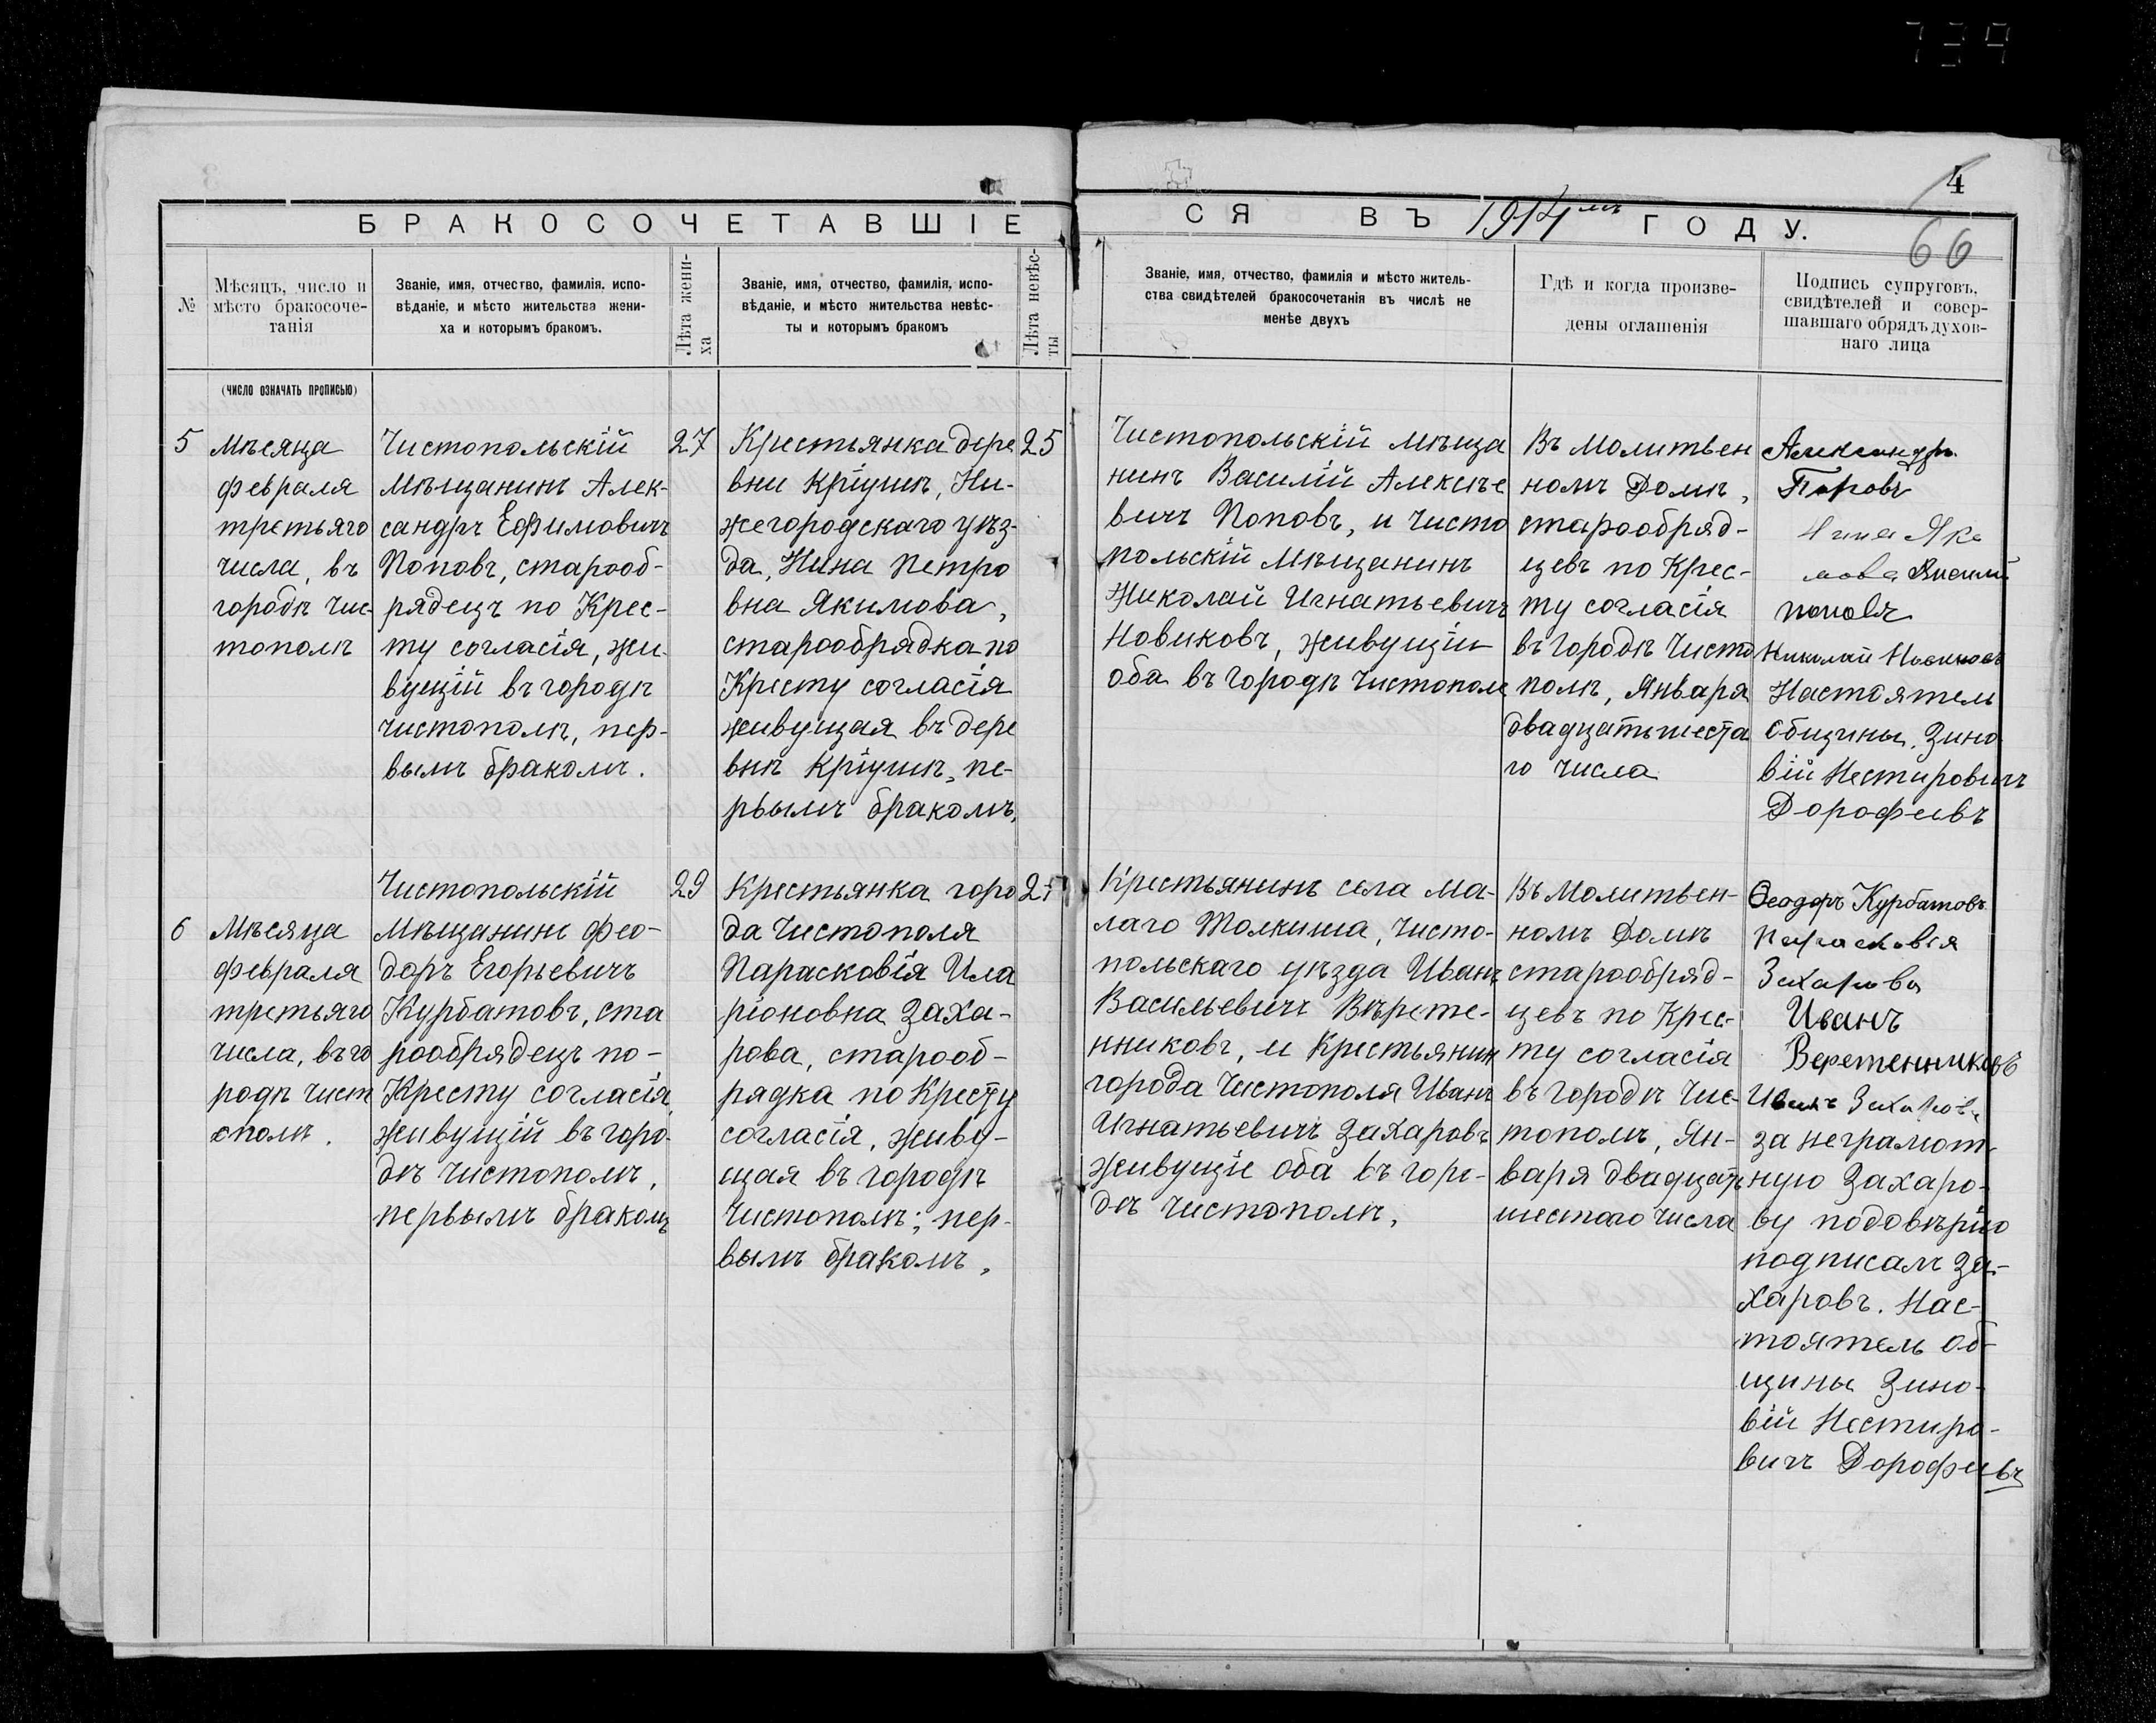 739
4
БРАКОСОЧЕТАВШІЕСЯ ВЪ 1914мъ ГОДУ.
66
№
Мѣсяцъ, число и
мѣсто бракосоче-
танія
(ЧИСЛО ОЗНАЧАТЬ ПРОПИСЬЮ)
Званіе, имя, отчество, фамилія, испо-
вѣданіе, и мѣсто жительства жени-
ха и которымъ бракомъ.
Лѣта жени-
ха
Званіе, имя, отчество, фамилія, испо-
вѣданіе, и мѣсто жительства невѣс-
ты и которымъ бракомъ
Лѣта невѣс-
ты
Званіе, имя, отчество, фамилія и мѣсто житель-
ства свидѣтелей бракосочетанія въ числѣ не
менѣе двухъ
Гдѣ и когда произве-
дены оглашенія
Подпись супруговъ,
свидѣтелей и совер-
шавшаго обрядъ духов-
наго лица
5
Мѣсяца
февраля
третьяго
числа, въ
городѣ Чис-
тополѣ
Чистопольскій
Мѣщанинъ Алек-
сандръ Ефимовичъ
Поповъ, старооб-
рядецъ по Крес-
ту согласія, жи-
вущій въ городѣ
Чистополѣ, пер-
вымъ бракомъ.
27
Крестьянка дере
вни Кріуши, Ни-
жегородскаго уѣз-
да, Нина Петро
вна Якимова,
старообрядка по
Кресту согласія
живущая въ дере
внѣ Кріушѣ, пе-
рвымъ бракомъ.
25
Чистопольскій мѣща
нинъ Василій Алексѣе
вичъ Поповъ, и Чисто
польскій мѣщанинъ
Николай Игнатьевичъ
Новиковъ, живущіи
оба въ городѣ Чистополѣ
Въ Молитвен
номъ Домѣ,
старообряд-
цевъ по Крес-
ту согласія
въ городѣ Чисто
полѣ, Января
двадцатьшеста
го числа
Александръ
Поповъ
Нина Яки
мова Василій
Поповъ
Николай Новиковъ
Настоятель
Общины, Зино
вій Нестировичъ
Дорофеевъ
6
Мѣсяца
февраля
третьяго
числа, въ го
родѣ Чист
ополѣ.
Чистопольскій
Мѣщанинъ Фео-
доръ Егорьевичъ
Курбатовъ, ста
рообрядецъ по-
Кресту согласія,
живущій въ горо-
дѣ Чистополѣ,
первымъ бракомъ
29
Крестьянка горо
да Чистополя
Парасковія Ила
ріоновна Заха-
рова, старооб-
рядка по Кресту
согласія, живу-
щая въ городѣ
Чистополѣ; пер-
вымъ бракомъ.
Крестьянинъ села Ма-
лаго Толкиша, Чисто-
польскаго уѣзда Иванъ
Васильевичъ Вѣрете-
нниковъ, и Крестьянин
города Чистополя Иванъ
Игнатьевичъ Захаровъ
живущіе оба въ горо-
дѣ Чистополѣ.
Въ Молитвен-
номъ Домѣ
старообряд-
цевъ по Крес-
ту согласія
въ городѣ Чис-
тополѣ, Ян-
варя двадцать
шестого числа
Ѳеодоръ Курбатовъ
Парасковія
Захарова
Иванъ
Веретенниковъ
Иванъ Захаровъ
за неграмот-
ную Захаро-
ву подовѣрію
подписалъ За-
харовъ. Нас-
тоятель Об-
щины Зино-
вій Нестиро-
вичъ Дорофеевъ